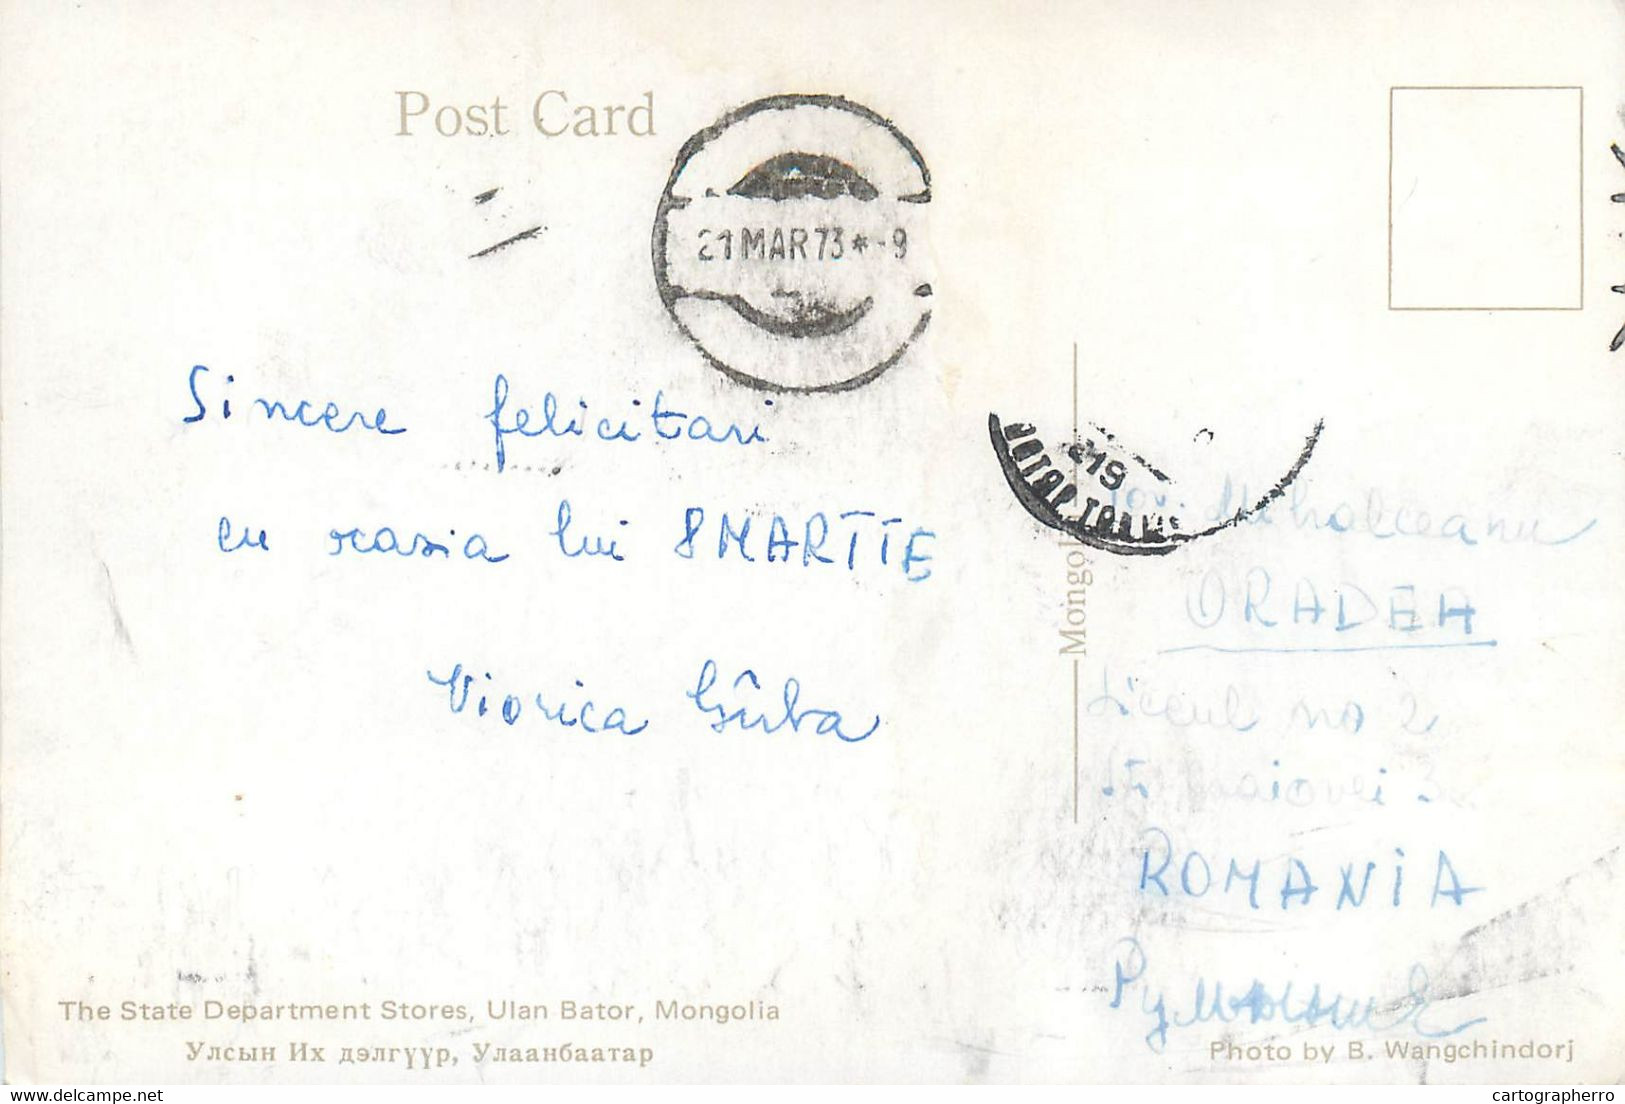 Post Card
21 MAR 73 * - 9
Sincere felicitari
cu ocasia lui 8 MARTIE
Viorica Gûrba
219
Mongol
Mihalceanu
ORADEA
Liceul no 2
ROMANIA
The State Department Stores, Ulan Bator, Mongolia
Улсын Их дэлгүүр, Улаанбаатар
Photo by B. Wangchindorj
delcampe.net
cartographerro